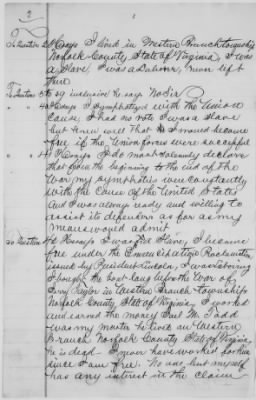 2
To Question 2 He says I lived in Western Branch township
Norfolk County State of Virginia, I was
a Slave, I was a Laborer, never left
there
To Question 3 to 39 inclusive he says No Sir
" " 40 He says I Sympathized with the Union
cause. I had no vote I was a slave
but knew well that I would become
free if the Union forces were successful
" " 41 He says I do most solemnly declare
that from the beginning to the end of the
war my sympathies were constantly
with the cause of the United States
And I was always ready and willing to
assist its defenders as far as my
means would admit.
To Question He says I was a Slave, I became
free under the Emancipation Proclamation
issued by President Lincoln, I was
I bought the boat before the War of
Perry Taylor in Western Branch township
Norfolk County State of Virginia. I worked
and earned the money Earl M. Todd
was my master he lived in Western
Branch Norfolk County State of Virginia
he is dead I never have worked for him
since I am free. No one but myself
has any interest in the Claim